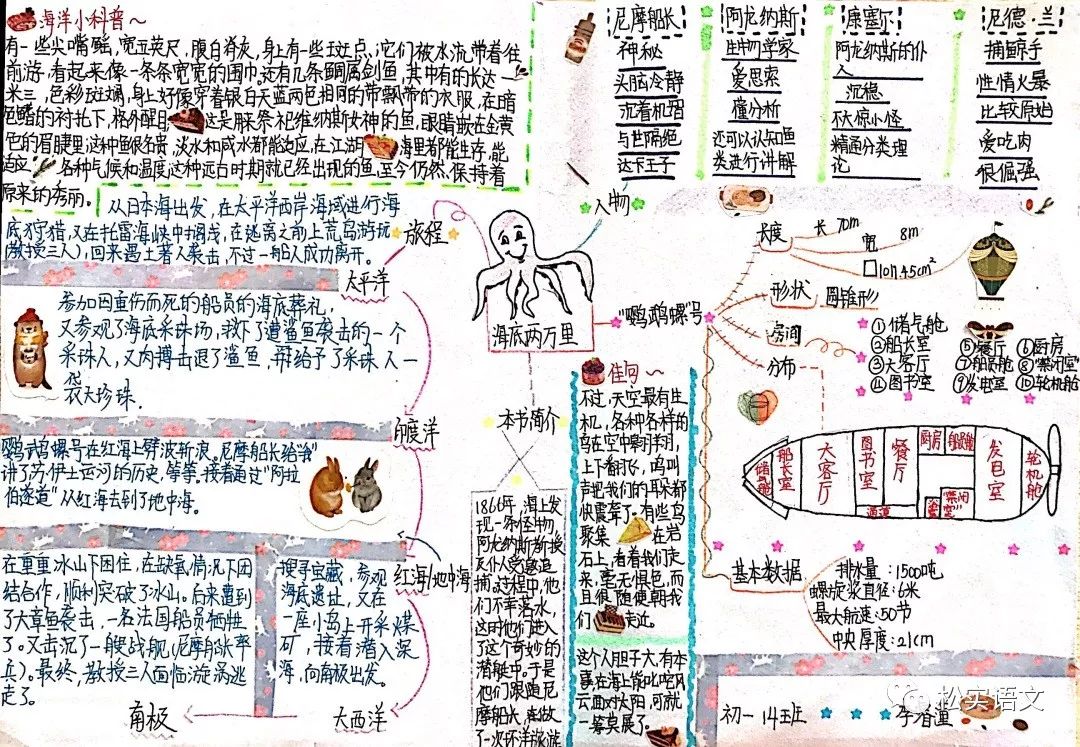 海洋小科普～
有一些尖嘴鳐,宽五英尺,腹白脊灰,身上有一些斑点,它们被水流带着往
前游,看起来像一条条宽宽的围巾,还有几条鲷属剑鱼,其中有的长达一
米三,色彩斑斓,身上好像穿着银白天蓝两色相间的带飘带的衣服,在暗
色鳍的衬托下,格外醒目
这是用来祭祀维纳斯女神的鱼,眼睛嵌在金黄
色的眉睫里;这种鱼很名贵,淡水和咸水都能适应,在江湖
海里都能生存,能
适应
各种气候和温度,这种远古时期就已经出现的鱼,至今仍然保持着
原来的秀丽。
尼摩船长
神秘
头脑冷静
沉着机智
与世隔绝
达卡王子
阿龙纳斯
生物学家
爱思索
懂分析
还可以认知鱼
类进行讲解
康塞尔
阿龙纳斯的仆
人
沉稳
不大惊小怪
精通分类理
论
尼德·兰
捕鲸手
性情火暴
比较原始
爱吃肉
很倔强
人物
旅程
从日本海出发,在太平洋西岸海域进行海
底狩猎,又在托雷海峡中搁浅,在逃离之前上荒岛游玩
(教授三人),回来遇土著人袭击,不过一船人成功离开。
太平洋
参加因重伤而死的船员的海底葬礼,
又参观了海底采珠场,救下了遭鲨鱼袭击的一个
采珠人,又肉搏击退了鲨鱼,并给予了采珠人一
袋
天珍珠.
印度洋
鹦鹉螺号在红海上劈波斩浪。尼摩船长给"我"
讲了苏伊士运河的历史,等等,接着通过"阿拉
伯隧道"从红海去到了地中海。
红海/地中海
搜寻宝藏,参观
海底遗址,又在
一座小岛上开采煤
矿,接着潜入深
海,向南极出发。
大西洋
在重重冰山下困住,在缺氧情况下团
结合作,顺利突破了冰山。后来遭到
了大章鱼袭击,一名法国船员牺牲
了。又击沉了一艘战舰(尼摩船长率
兵)。最终,教授三人面临漩涡逃
走了。
南极
海底两万里
本书简介
1866年,海上发
现一条怪物,
阿龙纳斯教授
及仆人受邀追
捕,过程中,他
们不幸落水,
这时他们进入
了这个奇妙的
潜艇中。于是
他们跟随尼
摩船长,
了一次环洋旅游
佳句～
不过,天空最有生
机,各种各样的
鸟在空中翱翔,
上下翻飞,鸣叫
声把我们的耳朵都
快震聋了。有些鸟
聚集
在岩
石上,看着我们走
来,毫无惧色,而
且很随便朝我
们
走近。
这个人胆子大,有本
事,在海上能叱咤风
云面对太阳,可就
一筹莫展了。
"鹦鹉螺"号
长度
长 70m
宽 8m
形状 圆锥形
房间
①储气舱
②船长室
③大客厅
④图书室
⑤餐厅
⑥厨房
⑦船员舱
⑧"禁闭室"
⑨发电室
⑩轮机舱
分布
储气舱
船长室
大客厅
图书室
餐厅
厨房
船员舱
浴室
"禁闭室"
通道
发电室
轮机舱
基本数据
排水量:1500吨
螺旋桨直径:6米
最大航速:50节
中央厚度:21cm
初一 14班
松实语文